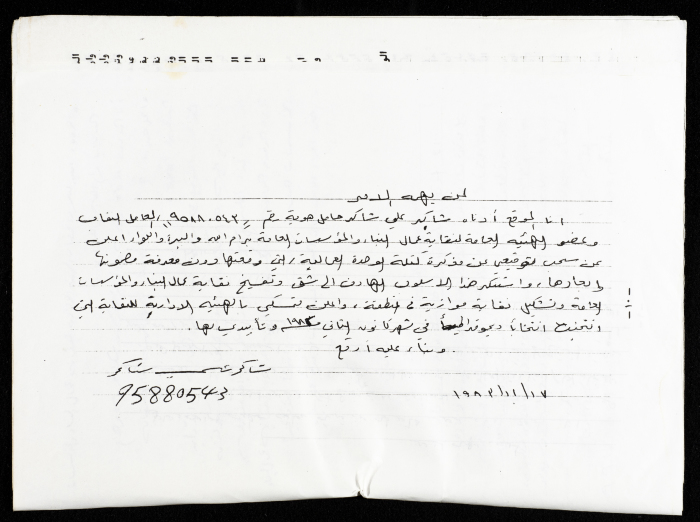 لمن يهمه الأمر
انا الموقع أدناه شاكر علي شاكر حامل هوية رقم "٩٥٨٨٠٥٤٣" العامل النقابي
وعضو الهيئة العامة لنقابة عمال البناء والمؤسسات العامة برام الله والبيرة واللواء اعلن
عن سحب توقيعي عن مذكرة كتلة الوحدة العمالية، التي وقعتها دون معرفة مضمونها
وابعادها، واستنكر هذا الاسلوب الهادف الى شق وتفسيخ نقابة عمال البناء والمؤسسات
العامة وتشكيل نقابة موازية في المنطقة، واعلن تمسكي بالهيئة الادارية للنقابة التي
انتخبت انتخاباً ديموقراطياً في شهر كانون الثاني ١٩٨٣ وتأييدي لها.
وبناء عليه أوقع
شاكر علي شاكر
95880543
١٩٨٣/١١/١٧